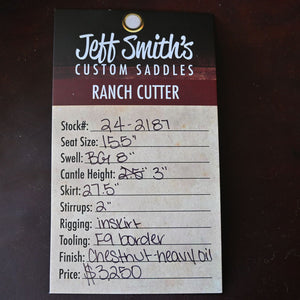 Jeff Smith's
CUSTOM SADDLES
RANCH CUTTER
Stock#: 24-2187
Seat Size: 15.5"
Swell: BG 8"
Cantle Height: 2.5" 3"
Skirt: 27.5"
Stirrups: 2"
Rigging: inskirt
Tooling: F9 border
Finish: Chestnut heavy oil
Price: $3250